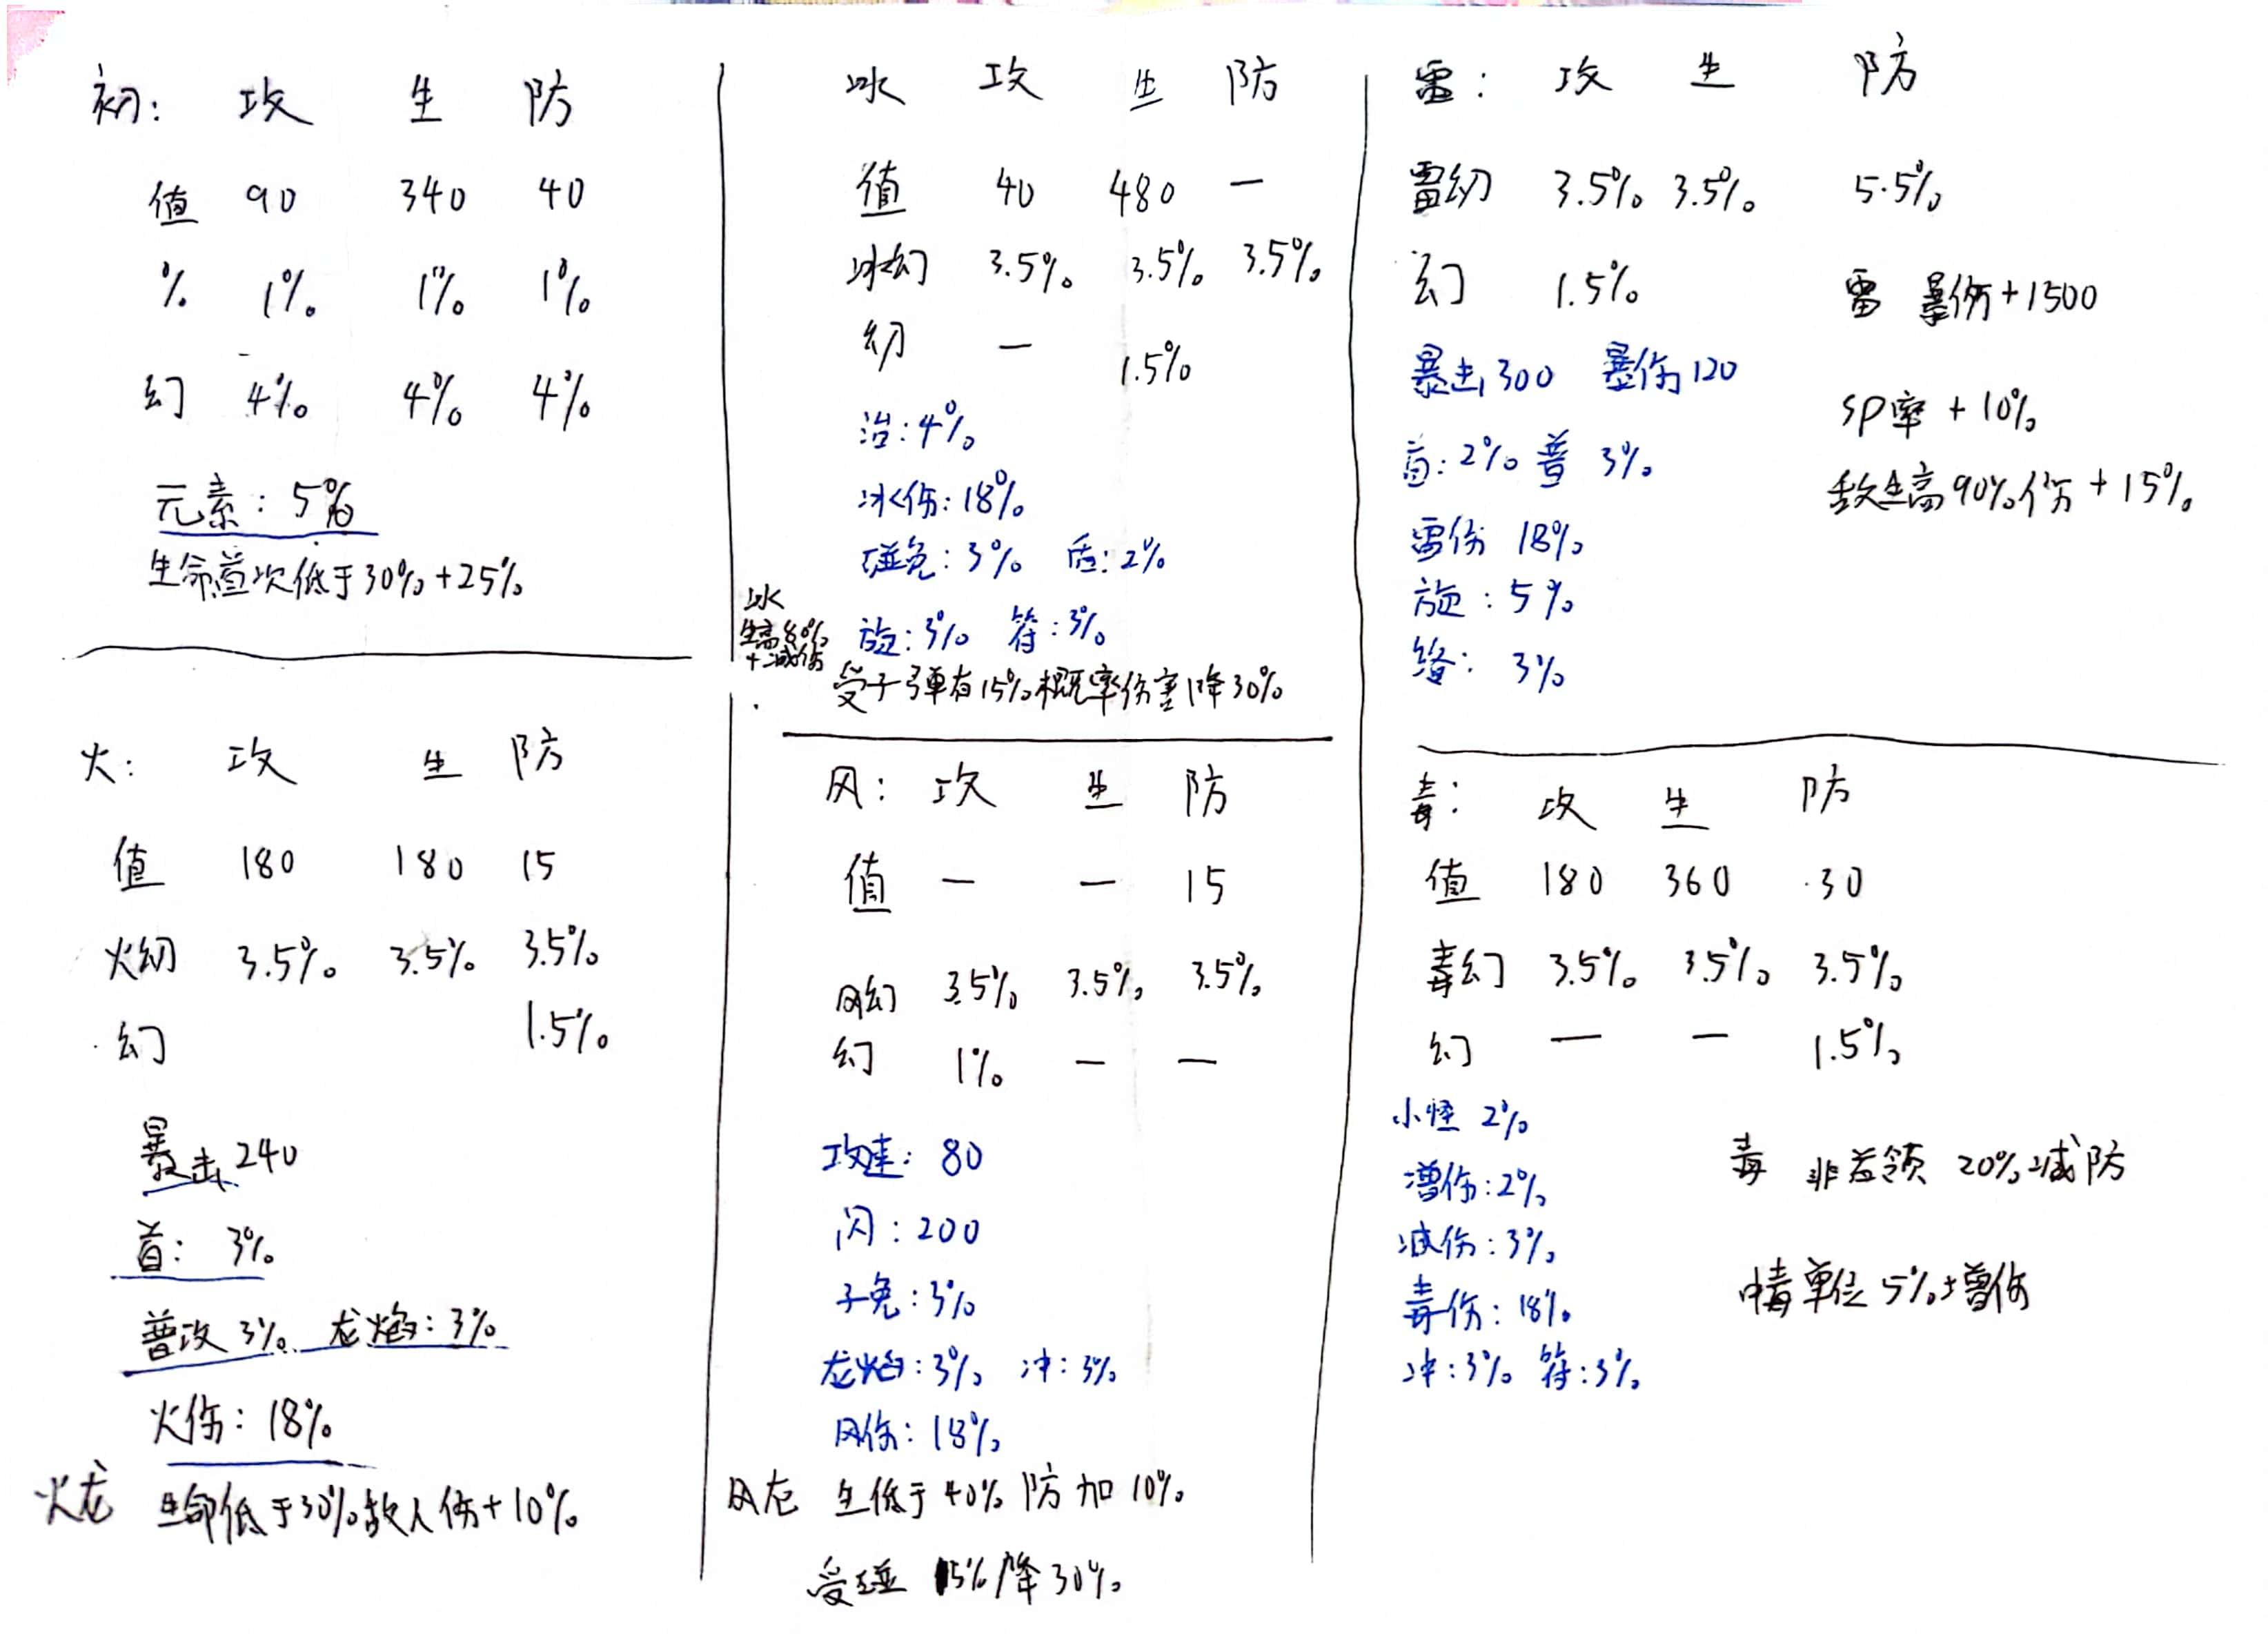 初: 攻 生 防
值 90 340 40
% 1% 1% 1%
幻 4% 4% 4%
元素: 5%
生命首次低于30%+25%
火: 攻 生 防
值 180 180 15
火幻 3.5% 3.5% 3.5%
幻 1.5%
暴击 240
首: 3%
普攻 3% 龙焰: 3%
火伤: 18%
火龙 生命低于30%敌人伤+10%
冰 攻 生 防
值 40 480 —
冰幻 3.5% 3.5% 3.5%
幻 — 1.5%
治: 4%
冰伤: 18%
碰免: 3% 盾: 2%
旋: 3% 符: 3%
冰
生高80%
+减伤
受子弹有15%概率伤害降30%
风: 攻 生 防
值 — — 15
风幻 3.5% 3.5% 3.5%
幻 1% — —
攻速: 80
闪: 200
子免: 3%
龙焰: 3% 冲: 3%
风伤: 18%
风龙 生低于40% 防加10%
受碰 15%降30%
雷: 攻 生 防
雷幻 3.5% 3.5% 5.5%
幻 1.5%
暴击300 暴伤120
首: 2% 普 3%
雷伤 18%
旋: 5%
络: 3%
雷 暴伤+1500
SP率+10%
敌生高90%伤+15%
毒: 攻 生 防
值 180 360 30
毒幻 3.5% 3.5% 3.5%
幻 — — 1.5%
小怪 2%
增伤: 2%
减伤: 3%
毒伤: 18%
冲: 3% 符: 3%
毒 非首领 20%减防
中毒单位5%增伤